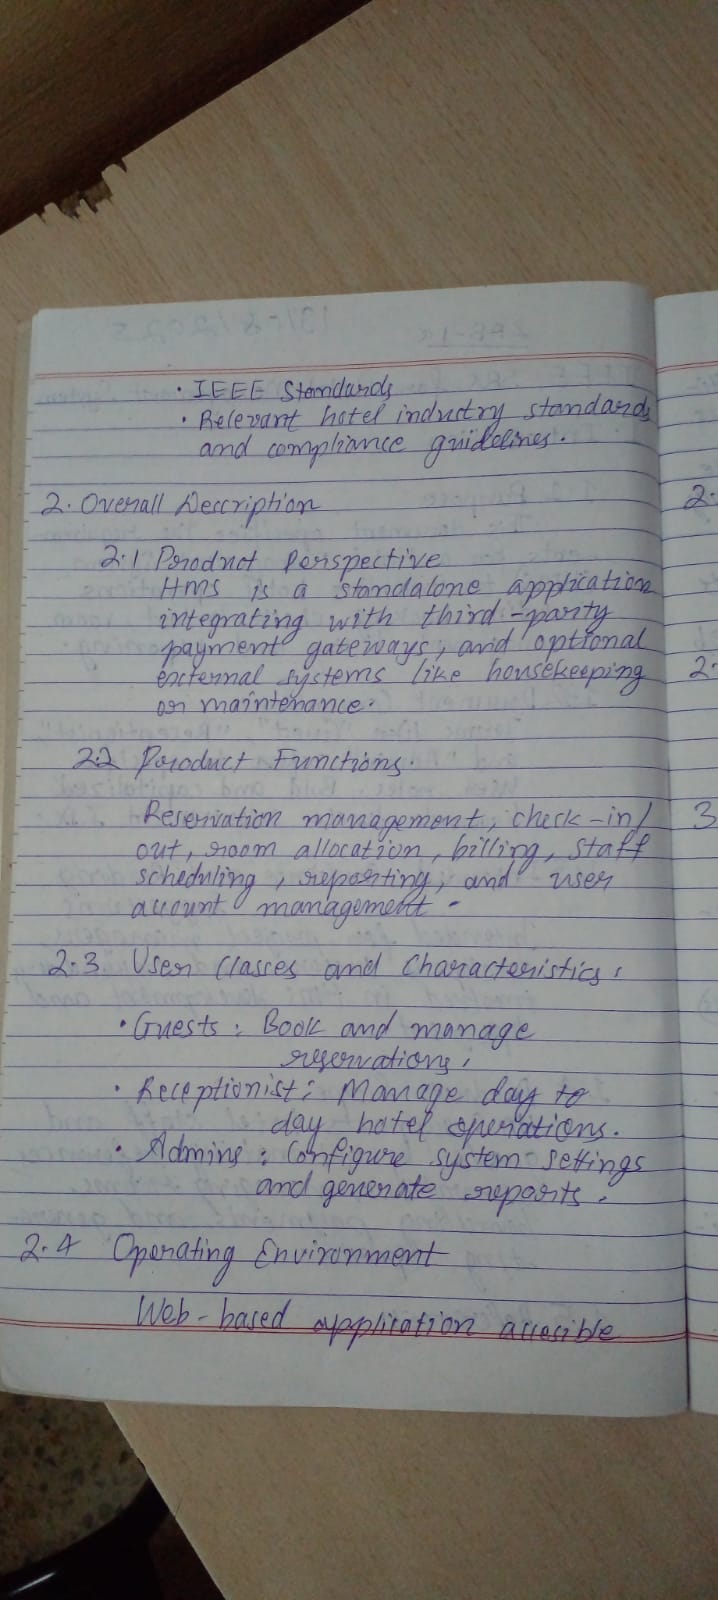 • IEEE Standards
• Relevant hotel industry standards
and compliance guidelines.
2. Overall Description
2.1 Product Perspective
HMS is a standalone application
integrating with third-party
payment gateways, and optional
external systems like housekeeping
or maintenance.
2.2 Product Functions.
Reservation management, check-in/
out, room allocation, billing, staff
scheduling, reporting, and user
account management.
2.3 User Classes and Characteristics:
• Guests: Book and manage
reservations.
• Receptionist: Manage day to
day hotel operations.
• Admins: Configure system settings
and generate reports.
2.4 Operating Environment
Web-based application accesible
2.
2.
3